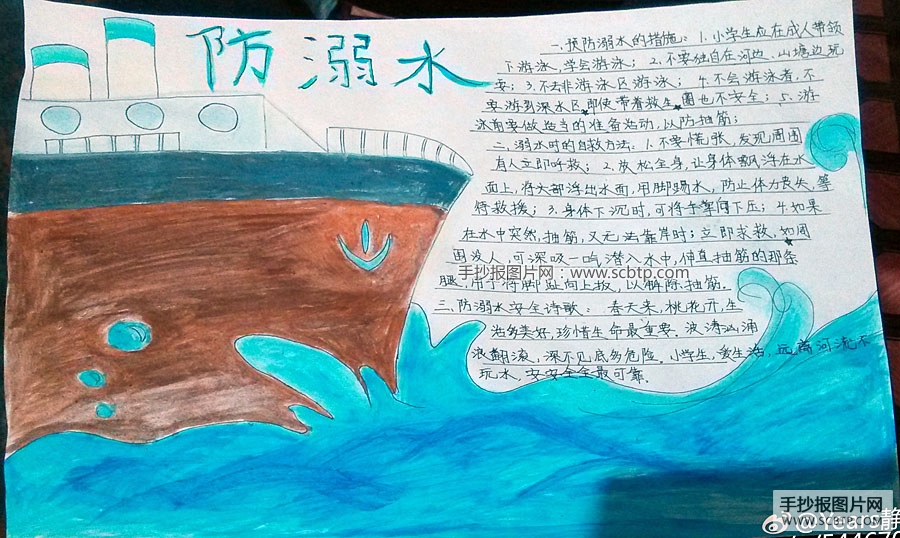 防溺水
一、预防溺水的措施：1.小学生应在成人带领
下游泳，学会游泳；2.不要独自在河边、山塘边玩
耍；3.不去非游泳区游泳；4.不会游泳者，不
要游到深水区，即使带着救生圈也不安全；5.游
泳前要做适当的准备活动，以防抽筋；
二、溺水时的自救方法：1.不要慌张，发现周围
有人立即呼救；2.放松全身，让身体飘浮在水
面上，将头部浮出水面，用脚踢水，防止体力丧失，等
待救援；3.身体下沉时，可将手掌向下压；4.如果
在水中突然抽筋，又无法靠岸时；立即求救，如周
围没人，可深吸一口气潜入水中，伸直抽筋的那条
手抄报图片网：www.scbtp.com
腿，用手将脚趾向上扳，以解除抽筋。
三、防溺水安全诗歌：春天来，桃花开，生
活多美好，珍惜生命最重要。波涛汹涌
浪翻滚，深不见底多危险。小学生，爱生活，远离河流不
玩水，安安全全最可靠。
手抄报图片网
WWW.SCBTP.COM
@Years静